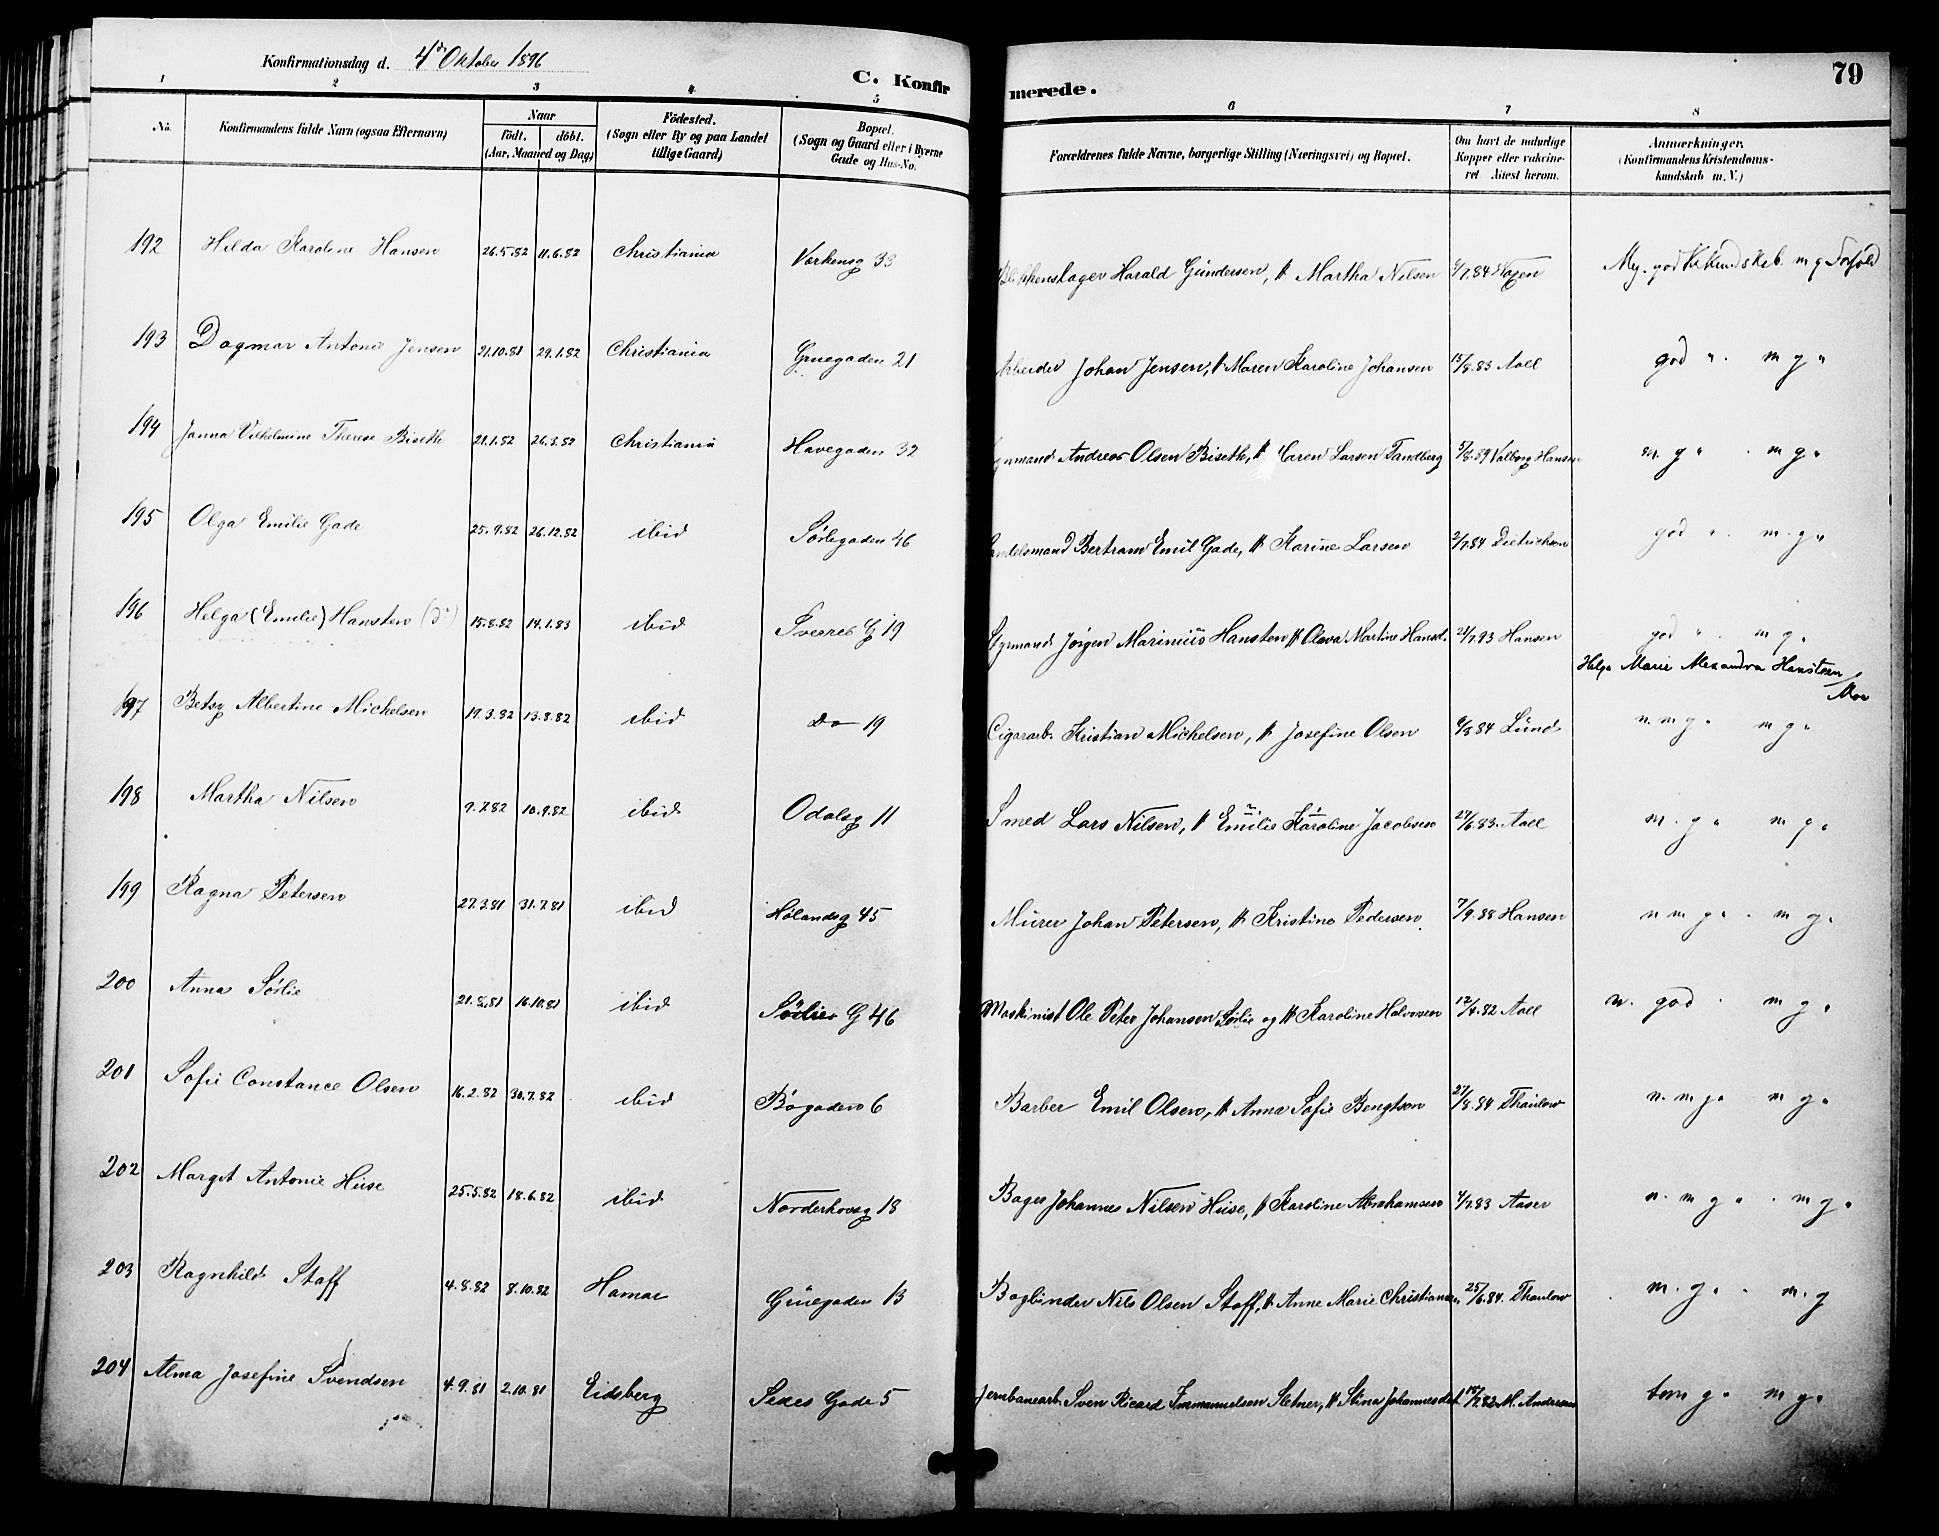 Konfirmationsdag d. 4de Oktober 1896
C. Konfirmerede.
79
1 2 3 4 5 6 7 8
No.
Konfirmandens fulde Navn (ogsaa Efternavn)
Naar
födt. döbt.
(Aar, Maaned og Dag)
Födested.
(Sogn eller By og paa Landet
tillige Gaard)
Bopæl.
(Sogn og Gaard eller i Byerne
Gade og Hus-No.
Forældrenes fulde Navne, borgerlige Stilling (Næringsvei) og Bopæl.
Om havt de naturlige
Kopper eller vakcine-
ret Attest herom.
Anmærkninger.
(Konfirmandens Kristendoms-
kundskab m. V.)
192 Hilda Karoline Hansen 26.5.82 11.6.82 Christiania 33 Harald Gundersen, Martha Nilsen 84 My. god m g Forhold
193 Dagmar Antonie Jensen 21.10.81 29.1.82 Christiania Gruegaden 21 Arbeider Johan Jensen, Maren Karoline Johansen 15/8.83 Aall god " m g "
194 Janna Vilhelmine Therese Biseth 21.1.82 26.3.82 Christiania Havegaden 32 Andreas Olsen Biseth, Caren Larsen Tandberg 89 Valborg Hansen m g " m g "
195 Olga Emilie Gade 25.9.82 26.12.82 ibid Sörligaden 46 Handelsmand Bertram Emil Gade, Karine Larsen 2/7.84 Dietrichson god " m. g "
196 Helga (Emilie) Hansten 15.8.82 14.1.83 ibid Sverres G 19 Styrmand Jörgen Marinius Hansten Olava Martine Hansd. 21/7.93 Hansen god " m g "
Helga Marie Alexandra Hansteen
Moe
197 Betsy Albertine Michelsen 19.3.82 13.8.82 ibid Do 19 Cigararb. Kristian Michelsen, Josefine Olsen 6/8 84 Lund n. m g " m g "
198 Martha Nilsen 9.7.82 10.9.82 ibid Odalsg 11 Smed Lars Nilsen, Emilie Karoline Jacobsen 27/6.83. Aall m. g " m g "
199 Ragna Petersen 27.3.81 31.7.81 ibid Hölandsg 45 Murer Johan Petersen, Kristine Pedersen. 7/9.88 Hansen n m g " m g "
200 Anna Sörlie 21.8.81 16.10.81 ibid Sörlies G 46 Maskinist Ole Peter Johansen Sörlie og Karoline Halvorsen 12/4.82 Aall n. god m g "
201 Sofie Constance Olsen 16.2.82 30.7.82 ibid Bögaden 6 Barber Emil Olsen, Anna Sofie Bengtson 27/8.84 Thaulow n. m g " m g "
202 Margit Antonie Huse 25.5.82 18.6.82 ibid Norderhovsg 18 Bager Johannes Nilsen Huse, Karoline Abrahamsen 4/7.83 Aaser n. m g " m g "
203 Ragnhild Staff 4.8.82 8.10.82 Hamar Gruegaden 13 Bogbinder Nils Olsen Staff, Anne Marie Christiansen 25/6.84. Thaulow m. g " m. g
204 Alma Josefine Svendsen 4.9.81 2.10.81 Eidsberg Sexes Gade 5 Jernbanearb. Sven Ricard Immanuelsen Sletner, Stina Johannesdat. 7.82 M. Andersen tem g " m g "